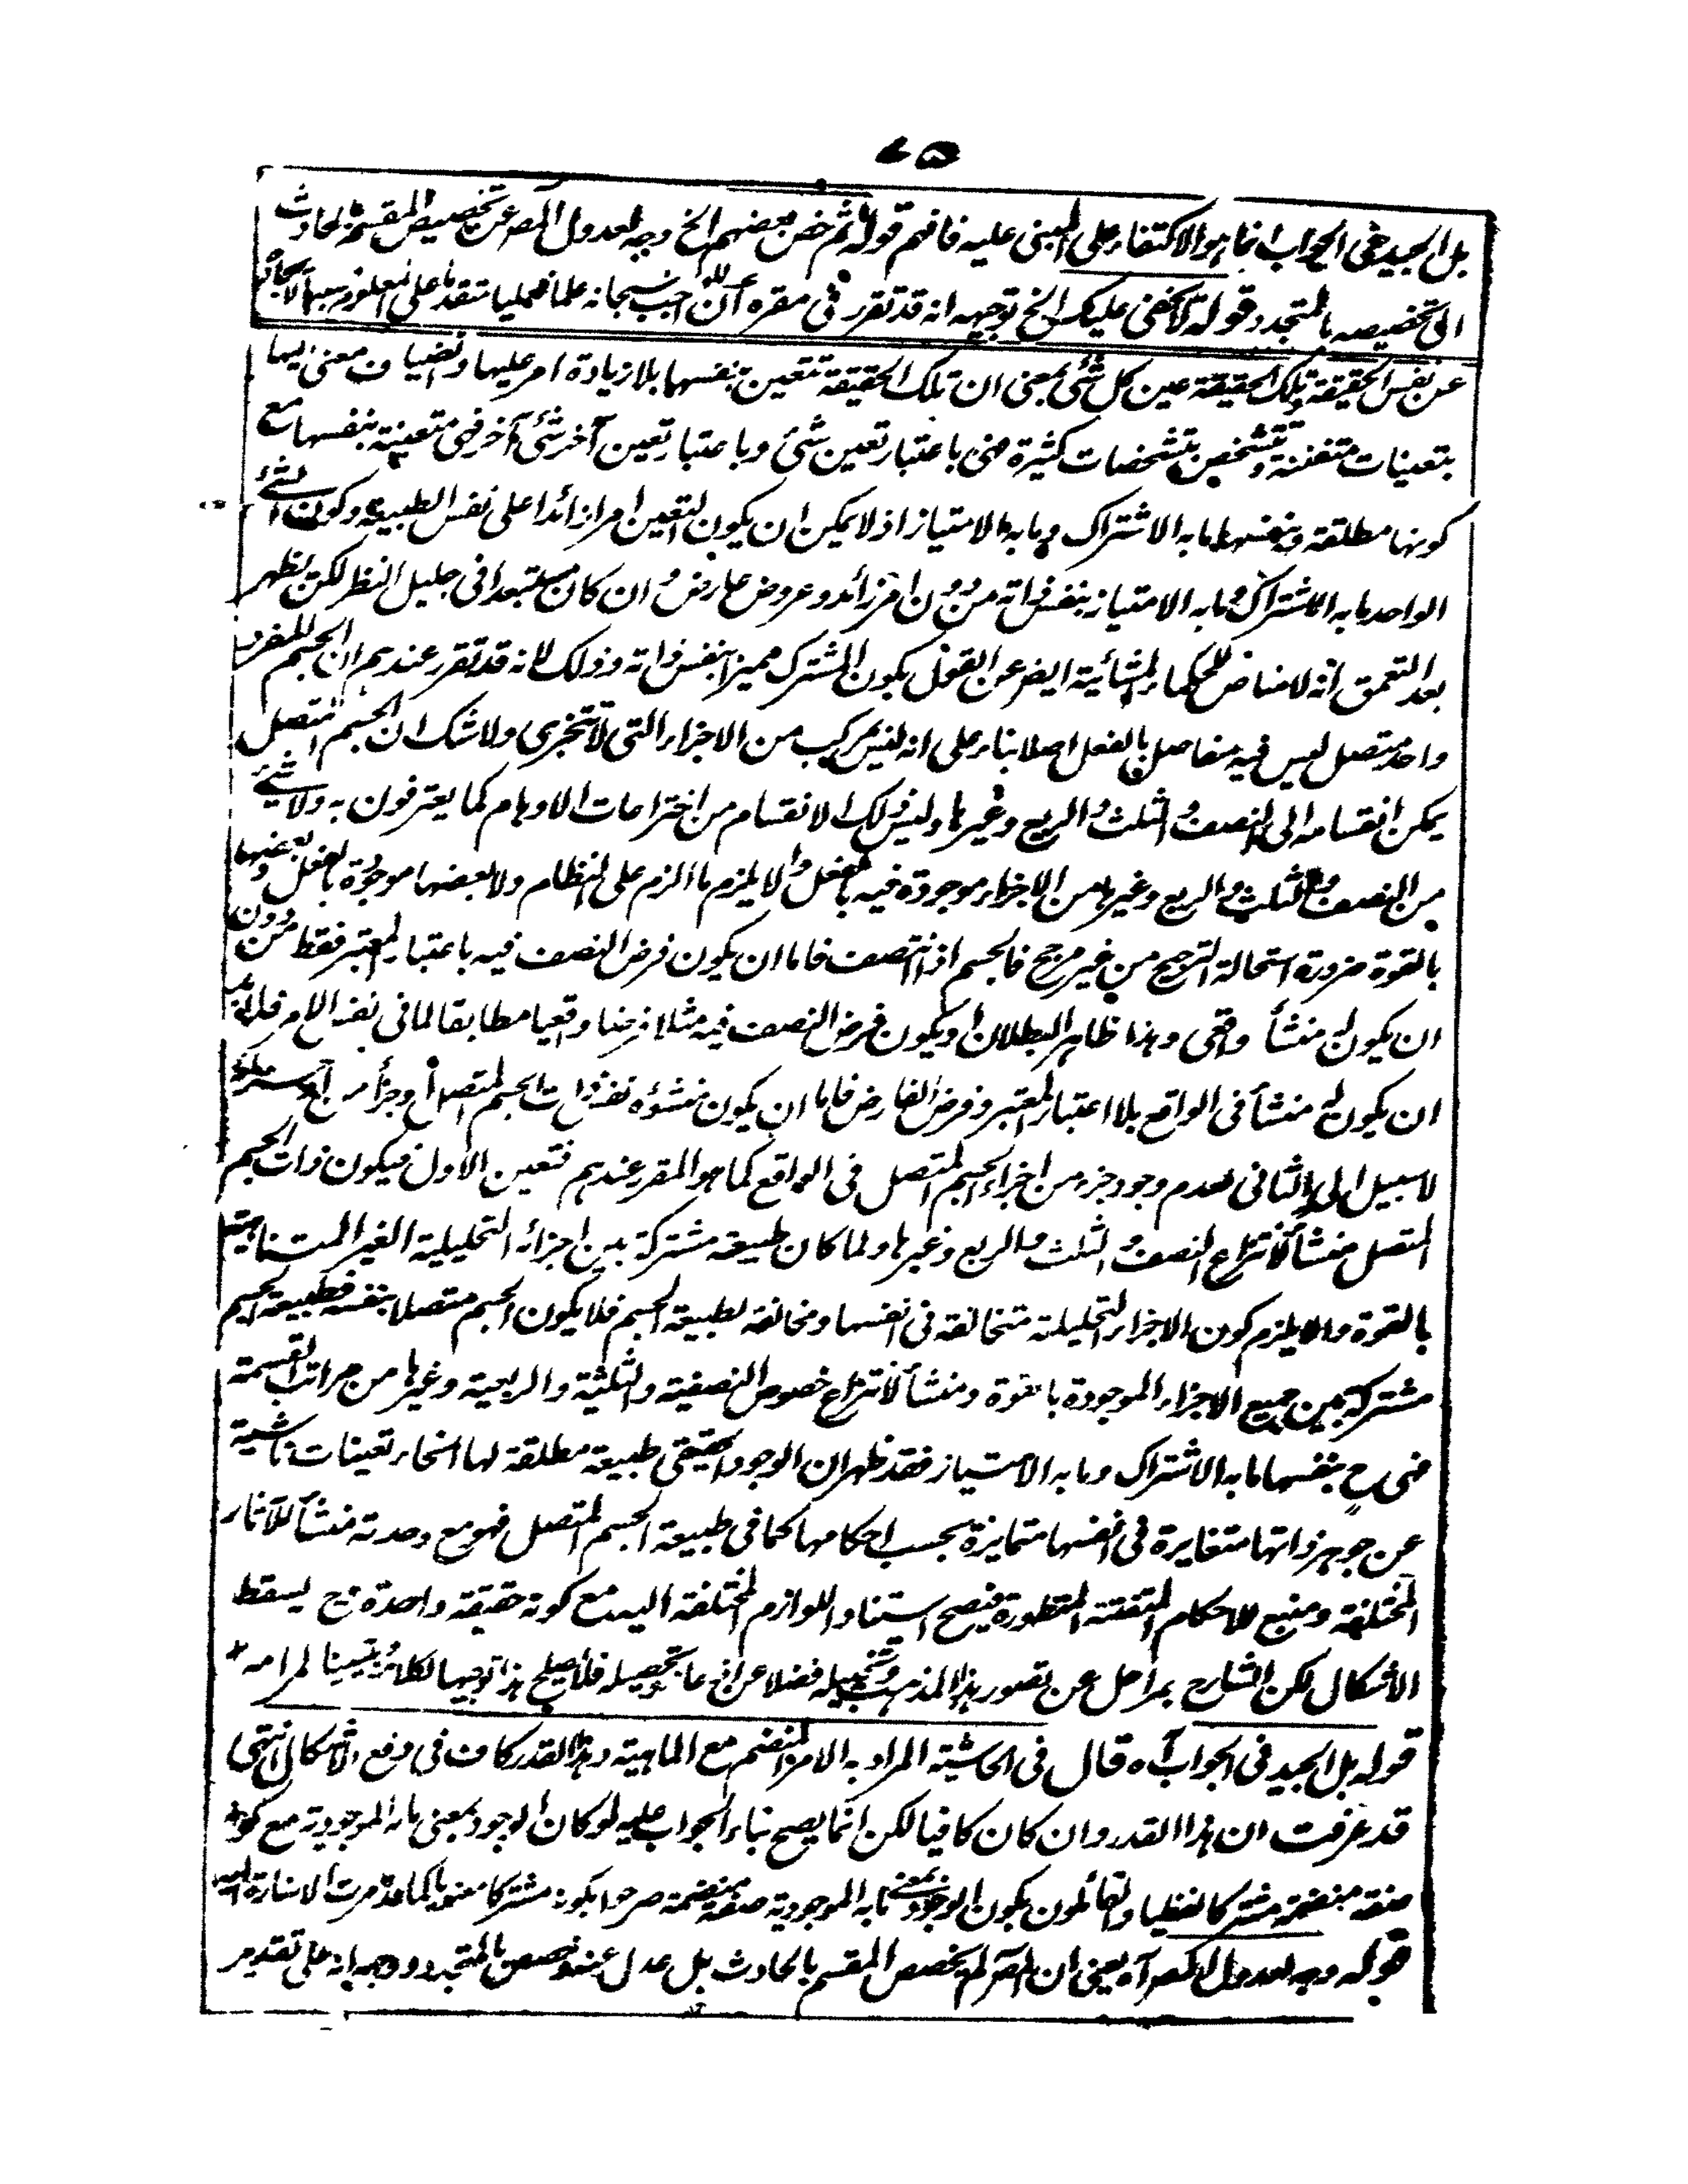 ٤٥
بل الجيد فى الجواب انما هو الاكتفاء على المبنى عليه فافهم قوله ثم خص بعضهم الخ وجه لعدول المصر عن تخصيص المقسم بالحادث
الى تخصيصه بالمتجدد قوله لا يخفى عليك الخ توجيهه انه قد تقرر فى مقره ان للواجب سبحانه علما فعليا متقدما على المعلوم سببا لايجاد
عن نفس الحقيقة وتلك الحقيقة عين كل شئ بمعنى ان تلك الحقيقة تتعين بنفسها بلا زيادة امر عليها وانضياف معنى اليها
بتعينات متفننة وتتشخص بتشخصات كثيرة فهى باعتبار تعين شئ وباعتبار تعين آخر شئ آخر فهى متعينة بنفسها مع
كونها مطلقة وبنفسها ما به الاشتراك وما به الامتياز اذ لا يمكن ان يكون التعين امرا زائدا على نفس الطبيعة وكون الشئ
الواحد ما به الاشتراك وما به الامتياز بنفس ذاته من دون امر زائد وعروض عارض وان كان مستبعدا فى جليل النظر لكن يظهر
بعد التعمق انه لا مناص للحكماء المشائية ايضر عن القول بكون المشترك مميزا بنفس ذاته وذلك لانه قد تقرر عندهم ان الجسم المفرد
واحد متصل ليس فيه مفاصل بالفعل اصلا بناء على انه ليس بمركب من الاجزاء التى لا تتجزى ولا شك ان الجسم المتصل
يمكن انقسامه الى النصف والثلث والربع وغيرها وليس ذلك الانقسام من اختراعات الاوهام كما يعترفون به ولا شئ
من النصف والثلث والربع وغيرها من الاجزاء موجودة فيه بالفعل والا يلزم ما الزم على النظام ولا بعضها موجودة بالفعل وبعضها
بالقوة ضرورة استحالة الترجيح من غير مرجح فالجسم اذا انتصف فاما ان يكون فرض النصف فيه باعتبار المعتبر فقط من دون
ان يكون له منشأ واقعى وهذا ظاهر البطلان او يكون فرض النصف فيه مثلا فرضا واقعيا مطابقا لما فى نفس الامر فلابد
ان يكون له منشأ فى الواقع بلا اعتبار المعتبر وفرض الفارض فاما ان يكون منشؤه نفس ذات الجسم المتصل او جزأ من
لا سبيل الى الثانى لعدم وجود جزء من اجزاء الجسم المتصل فى الواقع كما هو المقرر عندهم فتعين الاول فيكون ذات الجسم
المتصل منشأ لانتزاع النصف والثلث والربع وغيرها ولما كان طبيعة مشتركة بين اجزائه التحليلية الغير المتناهية
بالقوة والا يلزم كون الاجزاء التحليلية متخالفة فى انفسها ومخالفة لطبيعة الجسم فلا يكون الجسم متصلا بنفسه فطبيعة الجسم
مشتركة بين جميع الاجزاء الموجودة بالقوة ومنشأ لانتزاع خصوص النصفية والثلثية والربعية وغيرها من مراتب القسمة
فهى ح بنفسها ما به الاشتراك وما به الامتياز فقد ظهر ان الوجود الحقيقى طبيعة مطلقة لها انحاء تعينات ناشية
عن جوهر ذاتها متغايرة فى انفسها متمايزة بحسب احكامها كما فى طبيعة الجسم المتصل فهو مع وحدته منشأ للآثار
المختلفة ومنبع للاحكام المتفننة المتطورة فيصح استناد اللوازم المختلفة اليه مع كونه حقيقة واحدة فح يسقط
الاشكال لكن الشارح بمراحل عن تصور هذا المذهب وتخييله فضلا عن اذعانه وتحصيله فلا يصلح هذا توجيها لكلامه وتبيينا لمرامه
قوله بل الجيد فى الجواب آه قال فى الحاشية المراد به الامر المنضم مع الماهية وهذا القدر كاف فى دفع الاشكال انتهى
قد عرفت ان هذا القدر وان كان كافيا لكن انما يصح بناء الجواب عليه لو كان الوجود بمعنى ما به الموجودية مع كونه
صفة منضمة مشتركا لفظيا والقائلون بكون الوجود بمعنى ما به الموجودية صفة منضمة صرحوا بكونه مشتركا معنويا كما قد مرت الاشارة اليه
قوله وجه لعدول المصر آه يعنى ان المصر لم يخصص المقسم بالحادث بل عدل عنه وخصص بالمتجدد ووجهه انه على تقدير